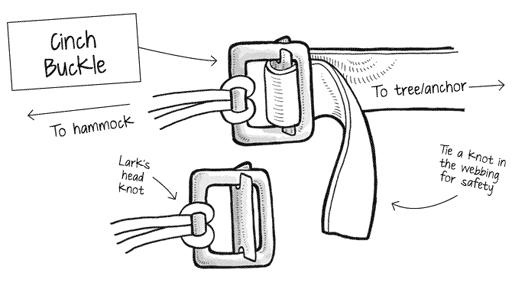 Cinch
Buckle
To tree/anchor
To hammock
Lark's
head
knot
Tie a knot in
the webbing
for safety